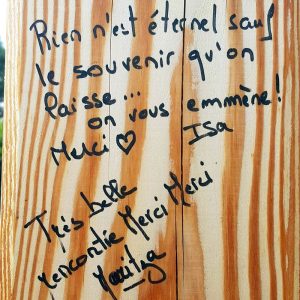 Rien n'est éternel sauf
le souvenir qu'on
laisse...
on vous emmène!
Merci ♡ Isa
Très belle
rencontre Merci Merci
Maritza